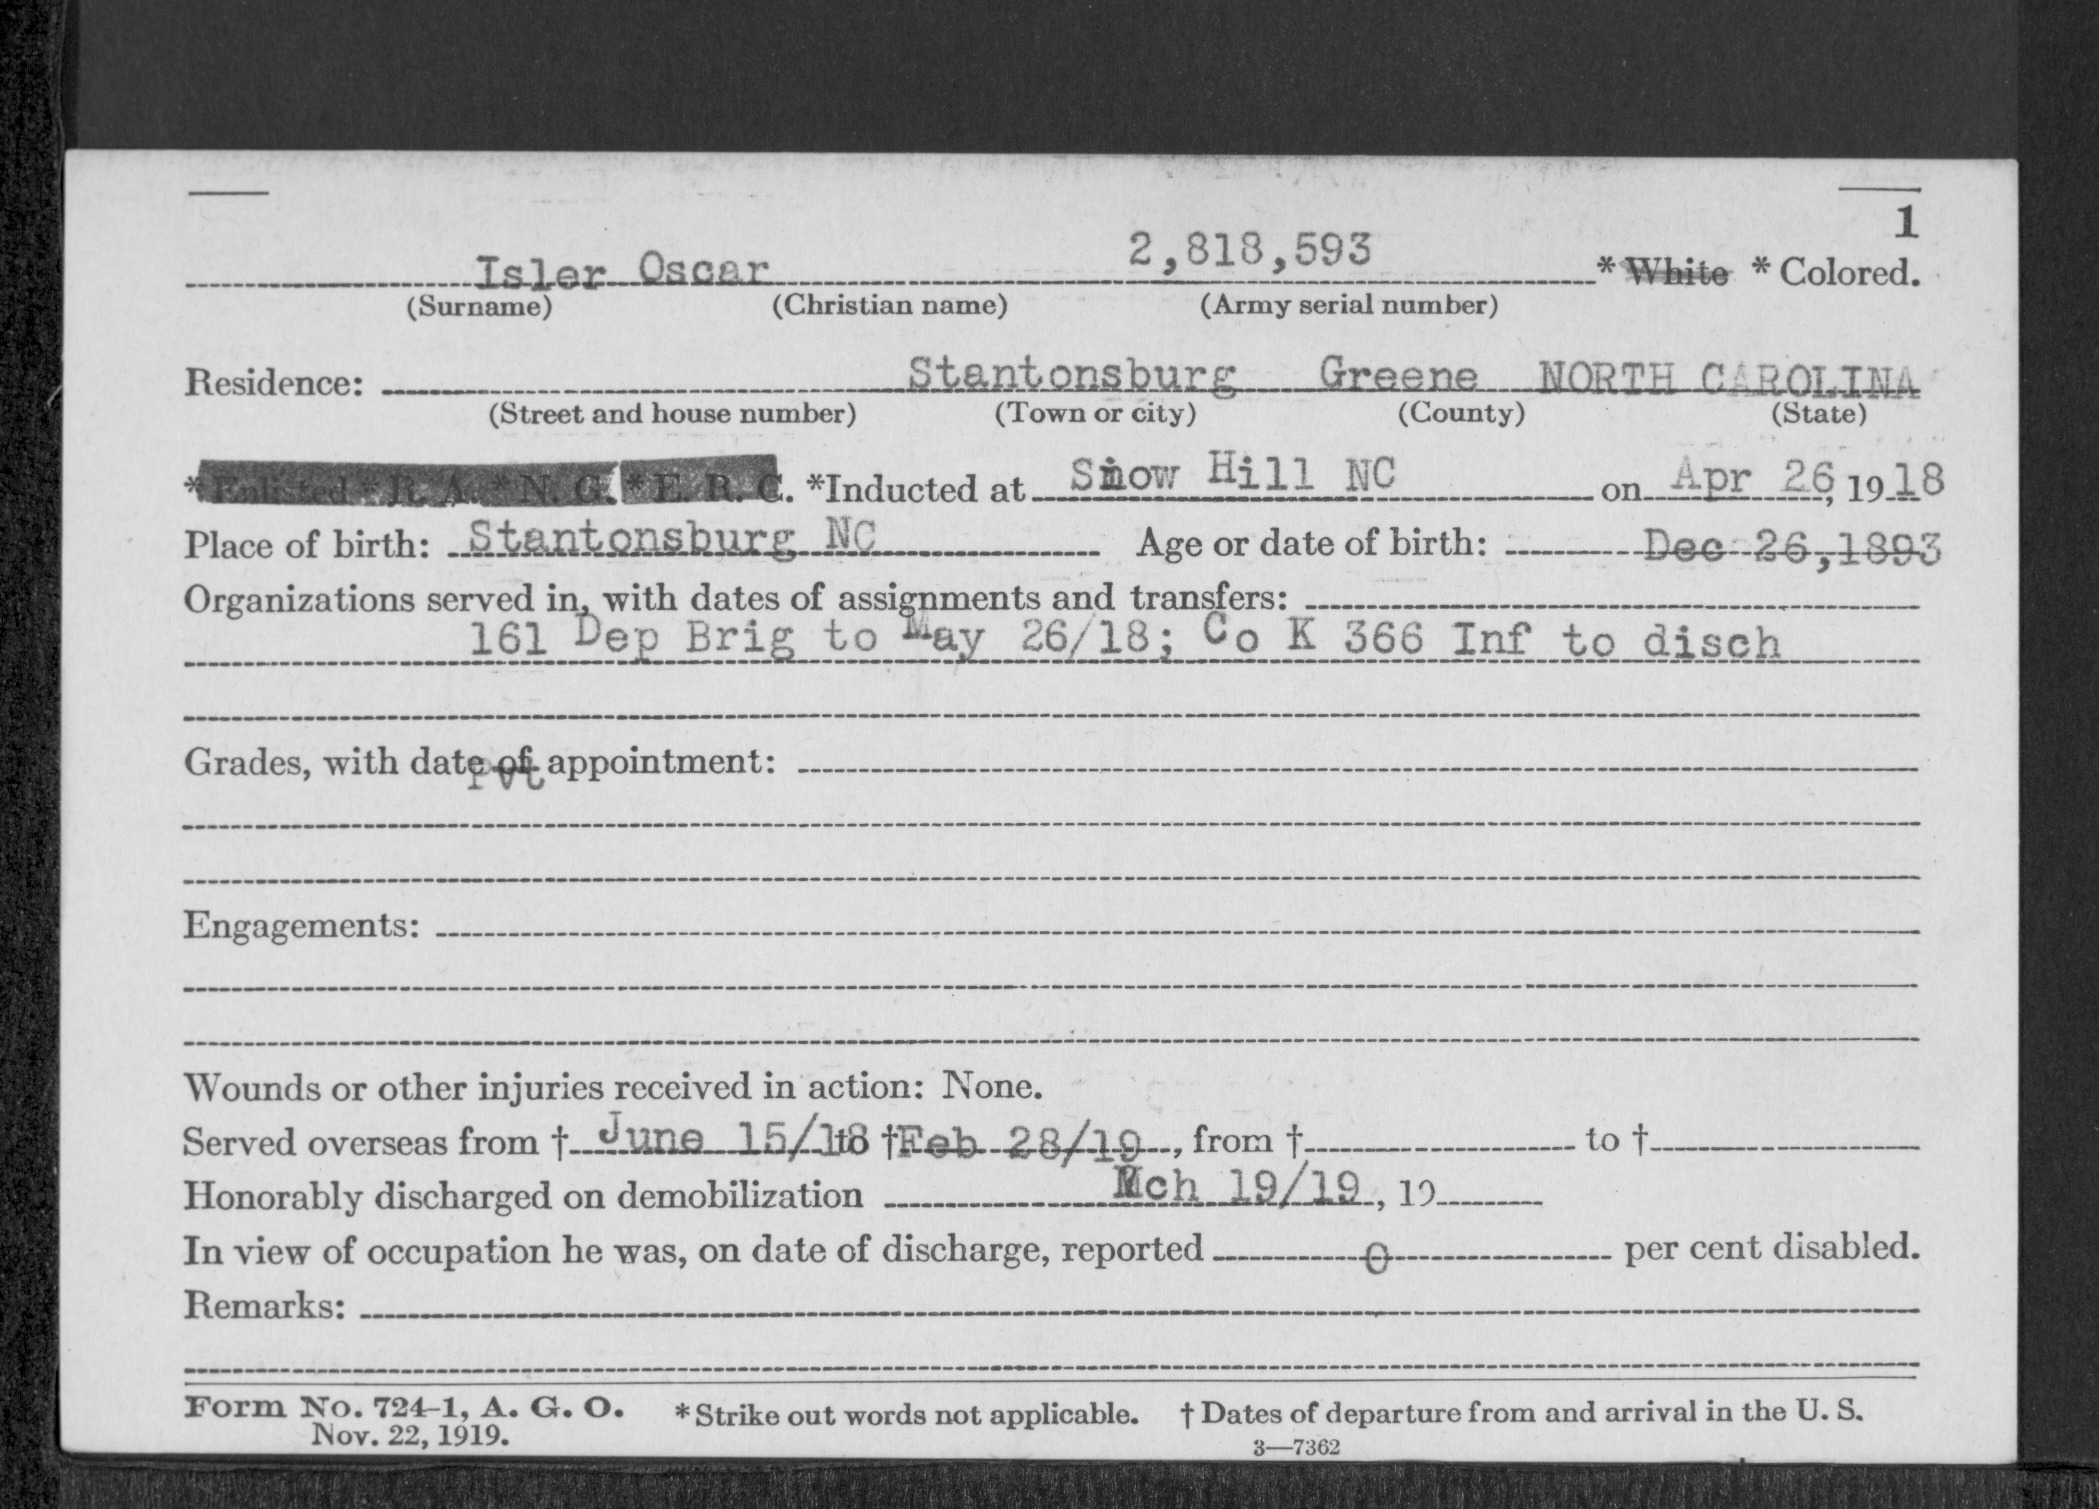 1
Isler Oscar 2,818,593 * White * Colored.
(Surname) (Christian name) (Army serial number)
Residence: Stantonsburg Greene NORTH CAROLINA
(Street and house number) (Town or city) (County) (State)
* Enlisted * R. A. * N. G. * E. R. C. *Inducted at Snow Hill NC on Apr 26, 1918
Place of birth: Stantonsburg NC Age or date of birth: Dec 26,1893
Organizations served in, with dates of assignments and transfers:
161 Dep Brig to May 26/18; Co K 366 Inf to disch
Grades, with date of appointment:
Pvt
Engagements:
Wounds or other injuries received in action: None.
Served overseas from † June 15/18 to † Feb 28/19, from † to †
Honorably discharged on demobilization Mch 19/19, 19
In view of occupation he was, on date of discharge, reported 0 per cent disabled.
Remarks:
Form No. 724-1, A. G. O. *Strike out words not applicable. † Dates of departure from and arrival in the U. S.
Nov. 22, 1919. 3—7362